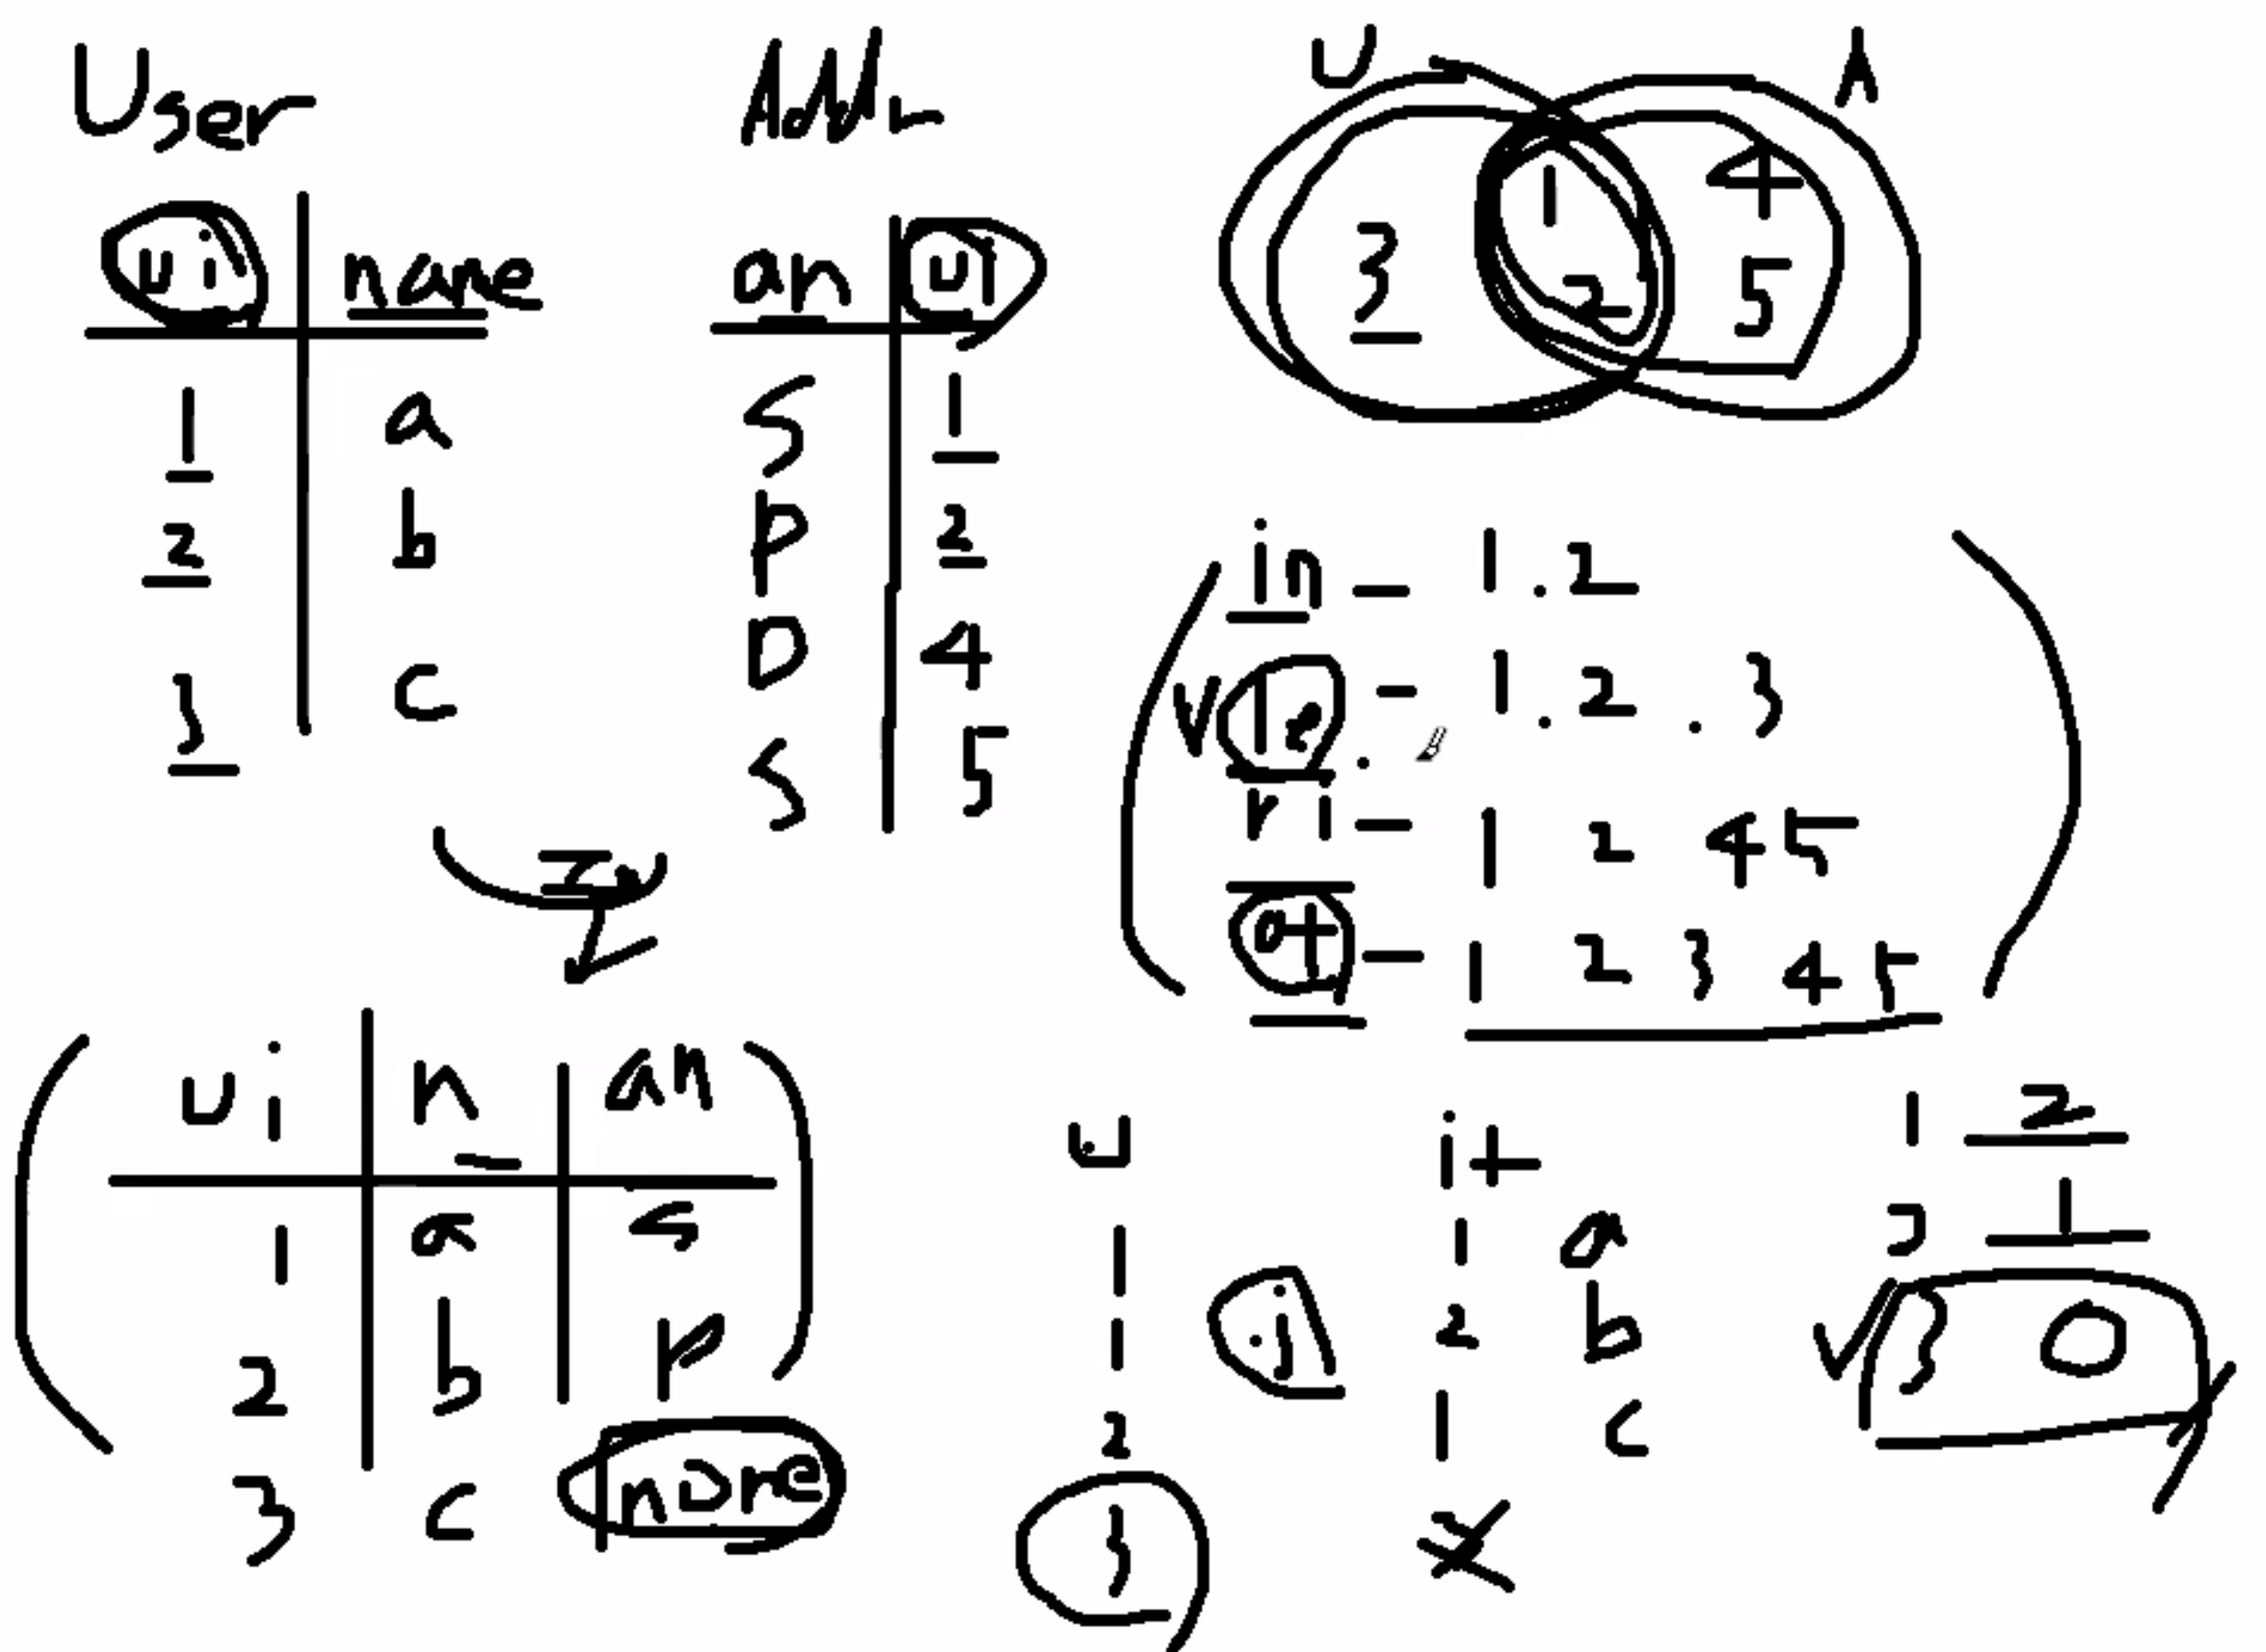 User
ui name
1 a
2 b
3 c
Addr
an ui
S 1
P 2
D 4
S 5
U A
3 1 2 4 5
in - 1.2
le - 1.2.3
ri - 1 2 4 5
ot - 1 2 3 4 5
ui n an
1 a s
2 b p
3 c none
u it
1 1 a
1 2 b
2 1 c
3
1 2
2 1
3 0